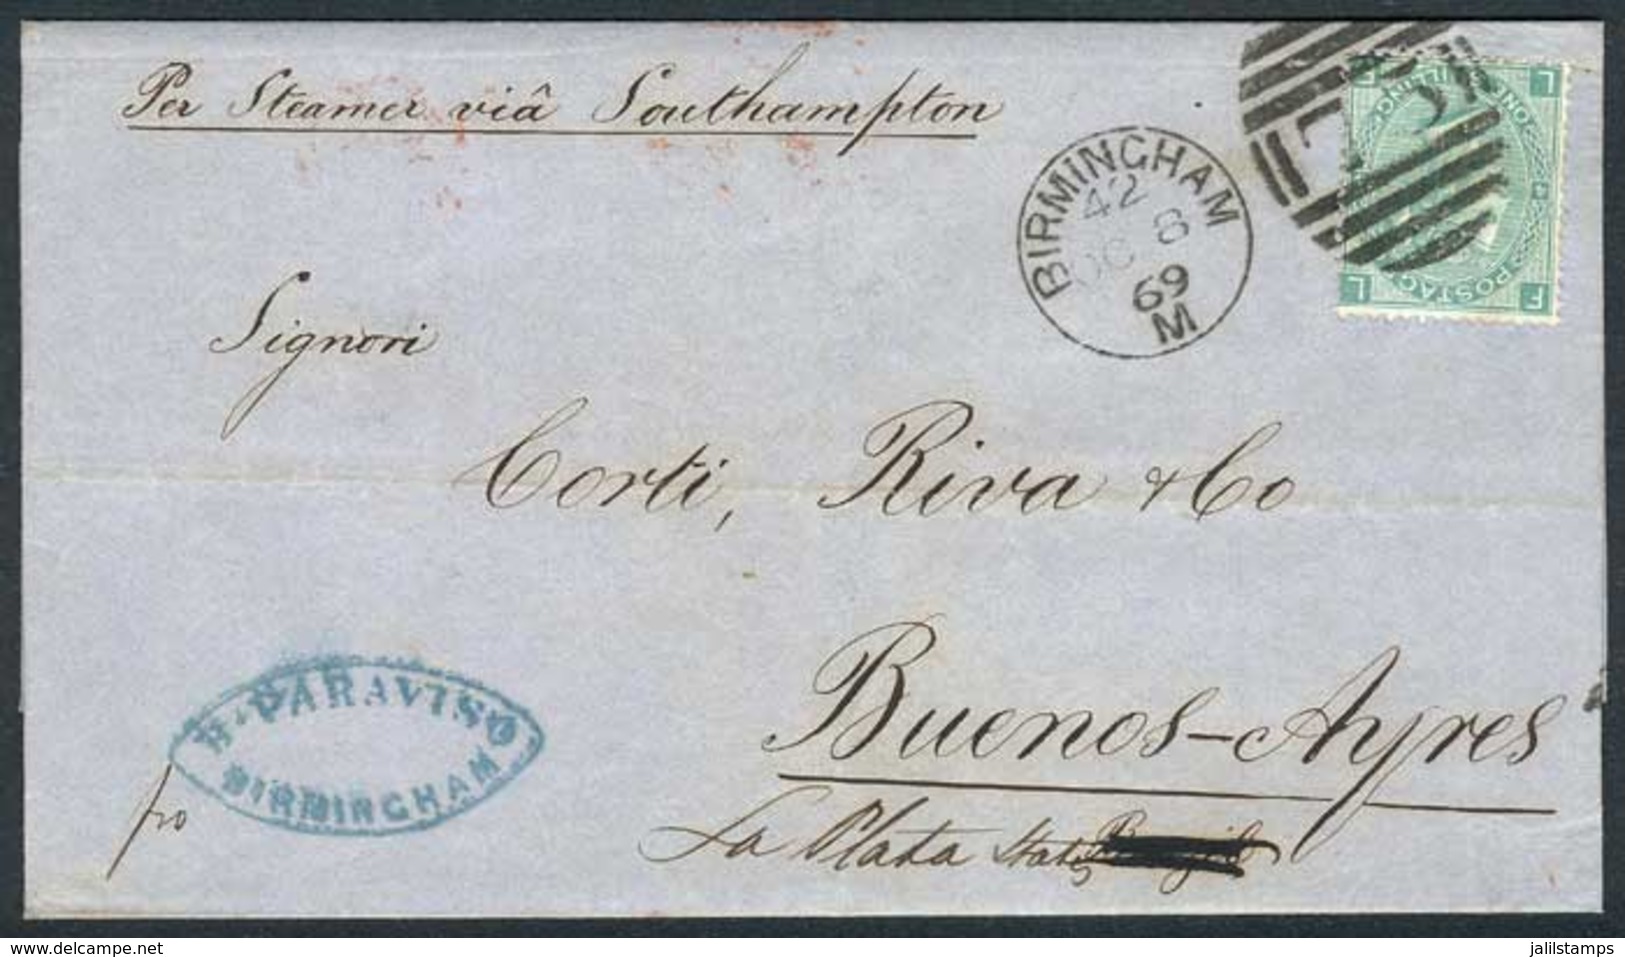 Per Steamer viâ Southampton
BIRMINGHAM
42
OC 8
69
M
ONE
POSTAG
L
F
L
Signori
Corti, Riva & Co
Buenos-Ayres
La Plata States
B. PARAVISO
BIRMINGHAM
pro
www.delcampe.net
jalilstamps